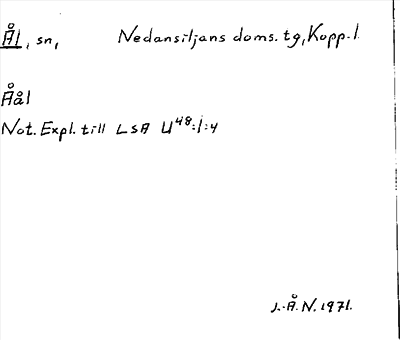 Ål, sn, Nedansiljans doms. tg, Kopp. l.
Åål
Not. Expl. till LSA U48:1:4
J.-Å. N. 1971.